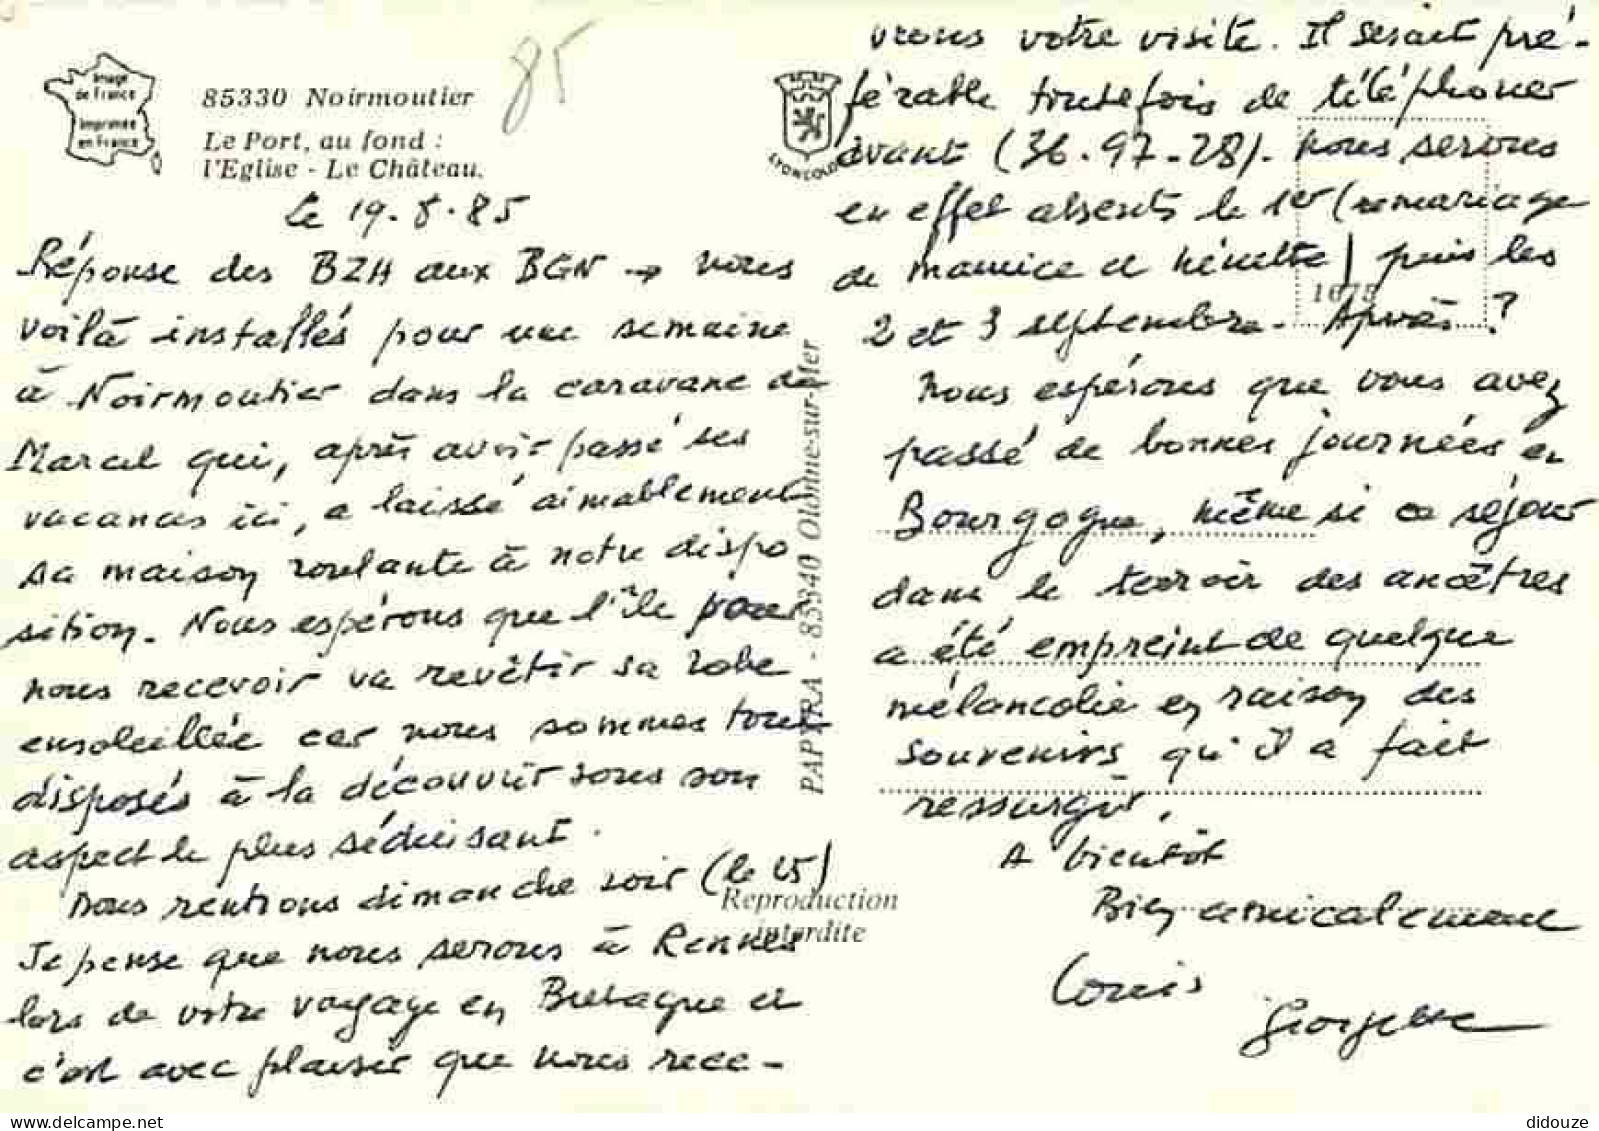 Image
de France
Imprimée
en France
85330 Noirmoutier
Le Port, au fond :
l'Eglise - Le Château.
85
LYONCOLOR
Le 19-8-85
Réponse des BZH aux BGN → nous
voilà installés pour une semaine
à Noirmoutier dans la caravane de
Marcel qui, après avoir passé ses
vacances ici, a laissé aimablement
sa maison roulante à notre dispo
sition. Nous espérons que l'île pour
nous recevoir va revêtir sa robe
ensoleillée car nous sommes tous
disposés à la découvrir sous son
aspect le plus séduisant.
Nous rentrons dimanche soir (le 25)
Je pense que nous serons à Rennes
lors de votre voyage en Bretagne et
c'est avec plaisir que nous rece-
PAPYRA - 85340 Olonne-sur-Mer
Reproduction
interdite
vrons votre visite. Il serait pré-
férable toutefois de téléphoner
avant (36-97-28). nous serons
en effet absents le 1er (remariage
de Maurice et Nénette) puis les
1675
2 et 3 septembre. Après ?
Nous espérons que vous avez
passé de bonnes journées en
Bourgogne, même si ce séjour
dans le terroir des ancêtres
a été empreint de quelque
mélancolie en raison des
souvenirs qu'il a fait
ressurgir.
A bientôt
Bien amicalement
Louis
Georgette
didouze